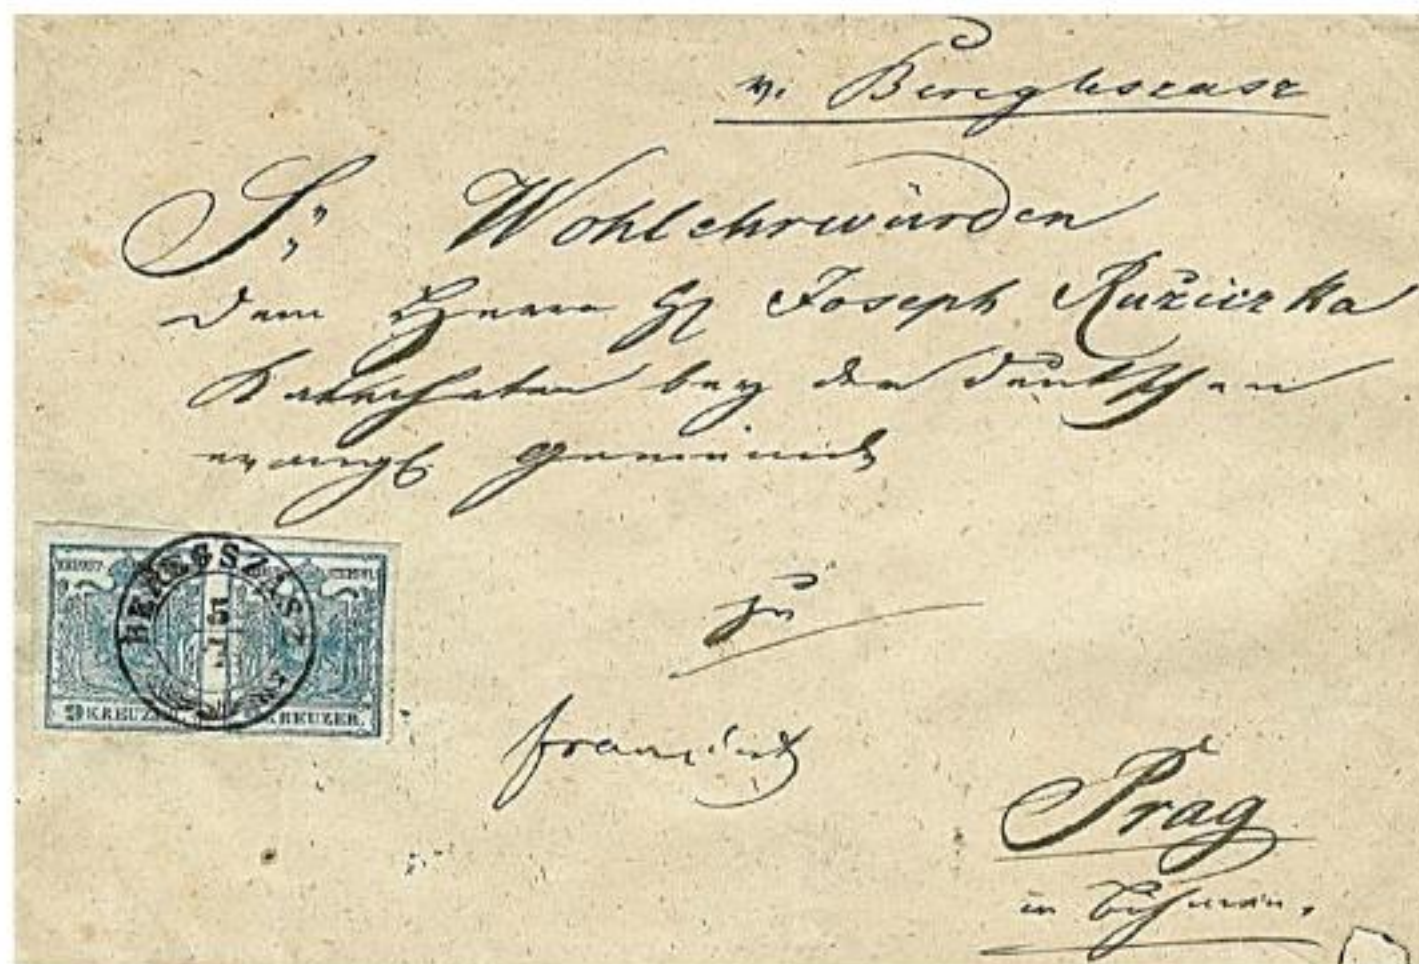 v. Bereghszasz
Sr Wohlehrwürden
dem Herrn H Joseph Ružiczka
Katecheten bey der deutschen
evangl. Gemeinde
zu
Prag
in Böhmen.
BEREGSZÁSZ
5
9 KREUZER.
KREUZER.